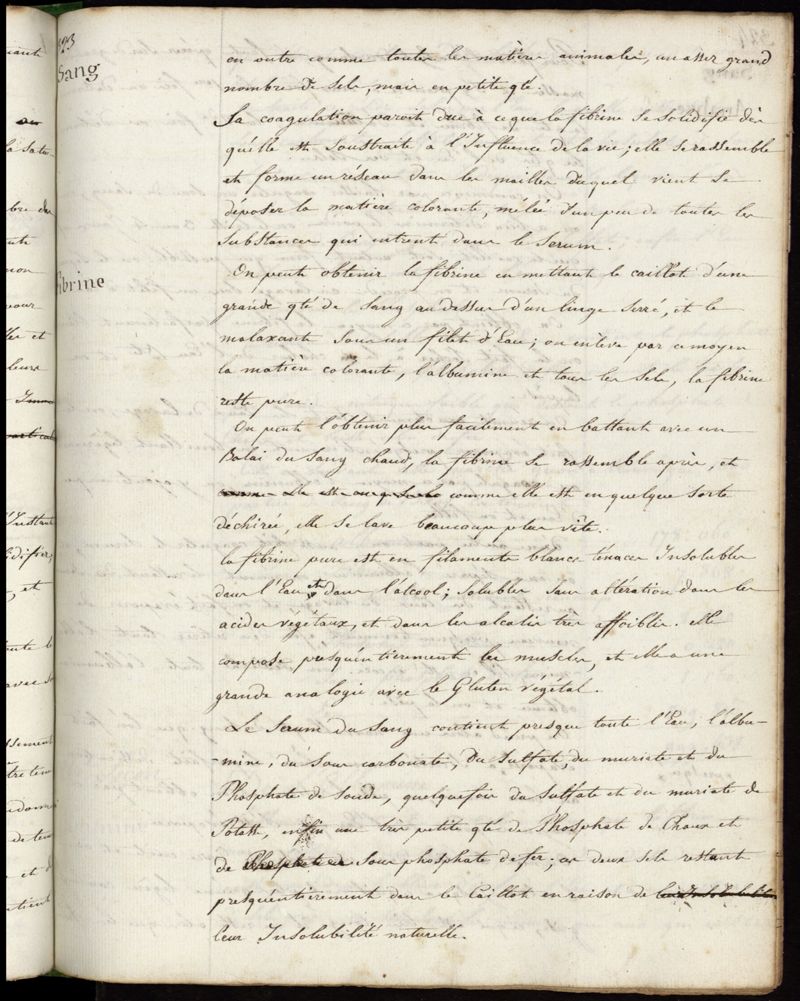 323
Sang
en outre comme toutes les matières animales, un assez grand
nombre de sels, mais en petite qté.
Sa coagulation paroit due à ce que la fibrine se solidifie dès
qu'elle est soustraite à l'Influence de la vie; elle se rassemble
et forme un réseau dans les mailles duquel vient se
déposer la matière colorante, mêlée d'un peu de toutes les
substances qui entrent dans le serum.
Fibrine
On peut obtenir la fibrine en mettant le caillot d'une
grande qté de sang au dessus d'un linge serré, et le
malaxant sous un filet d'Eau; on enlève par ce moyen
la matière colorante, l'albumine et tous les sels, la fibrine
reste pure.
On peut l'obtenir plus facilement en battant avec un
Balai du sang chaud, la fibrine se rassemble après, et
comme elle est en quelque sorte
déchirée, elle se lave beaucoup plus vîte.
la fibrine pure est en filaments blancs ténaces Insolubles
dans l'Eau et dans l'alcool; solubles sans altération dans les
acides végétaux, et dans les alcalis très affoiblis. Elle
compose presqu'entièrement les muscles, et elle a une
grande analogie avec le Gluten végétal.
Le Serum du Sang contient presque toute l'Eau, l'albu-
-mine, du sous carbonate, du sulfate du muriate et du
Phosphate de soude, quelquefois du sulfate et du muriate de
Potasse, enfin une très petite qté de Phosphate de Chaux et
de Phosphate de sous phosphate de fer; ces deux sels restant
presqu'entièrement dans le Caillot en raison de leur Insolubilité
leur Insolubilité naturelle.